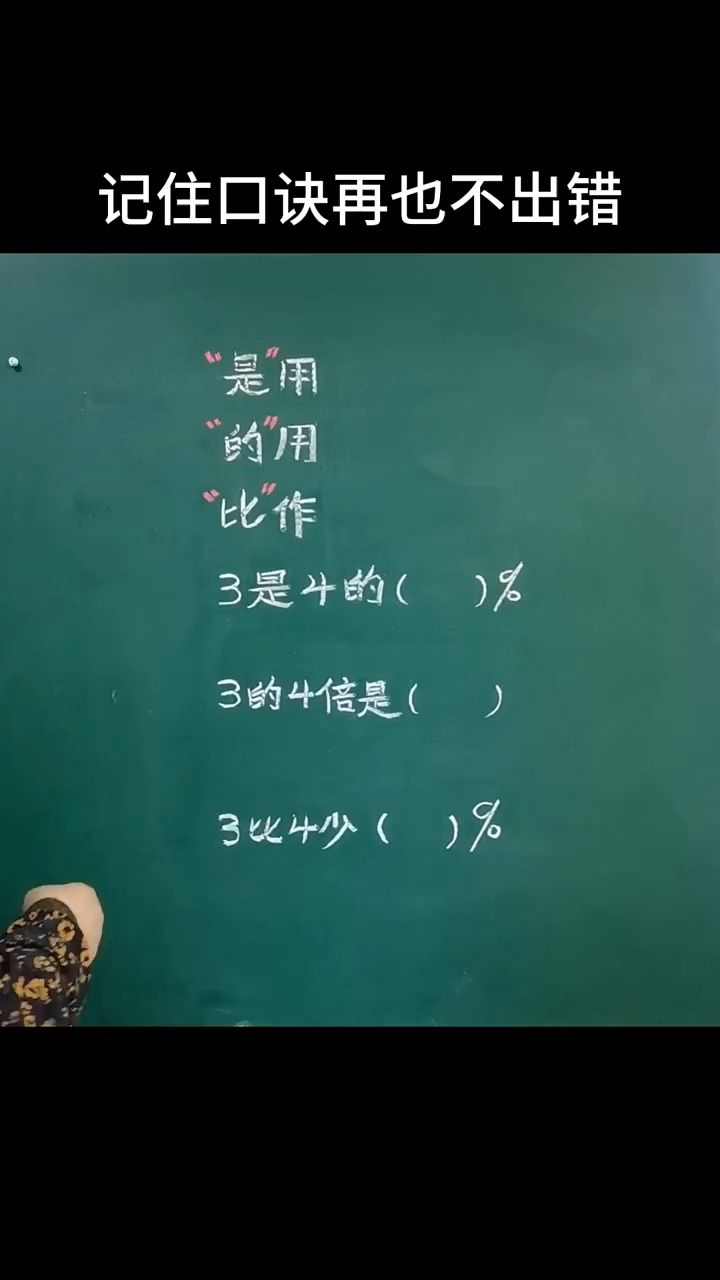 记住口诀再也不出错
“是”用
“的”用
“比”作
3是4的( )%
3的4倍是( )
3比4少( )%